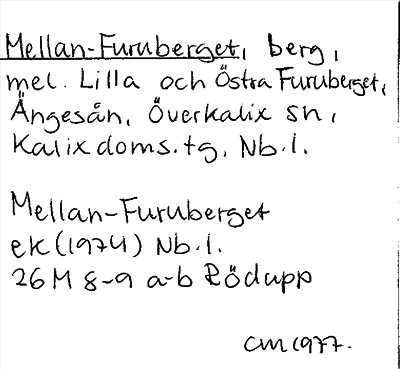 Mellan-Furuberget, berg,
mel. Lilla och Östra Furuberget,
Ängesån, Överkalix sn,
Kalix doms. tg, Nb.l.
Mellan-Furuberget
ek (1974) Nb.l.
26M 8-9 a-b Rödupp
CM 1977.